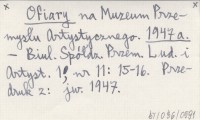 Ofiary na Muzeum Prze-
mysłu Artystycznego. 1947 a.
– Biul. Spółdz. Przem. Lud. i
Artyst. 1, nr 11: 15-16. Prze-
druk z: jw. 1947.